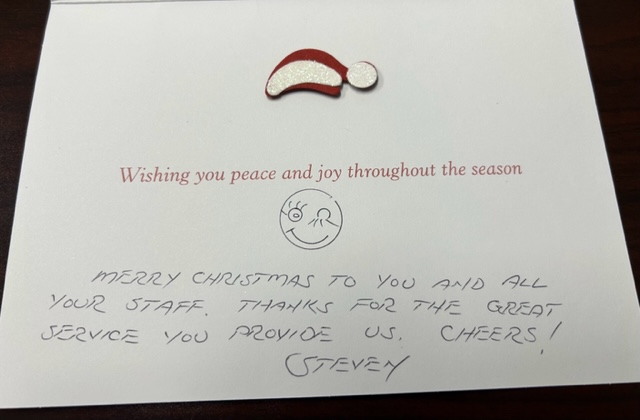 Wishing you peace and joy throughout the season
MERRY CHRISTMAS TO YOU AND ALL
YOUR STAFF. THANKS FOR THE GREAT
SERVICE YOU PROVIDE US. CHEERS!
STEVEN